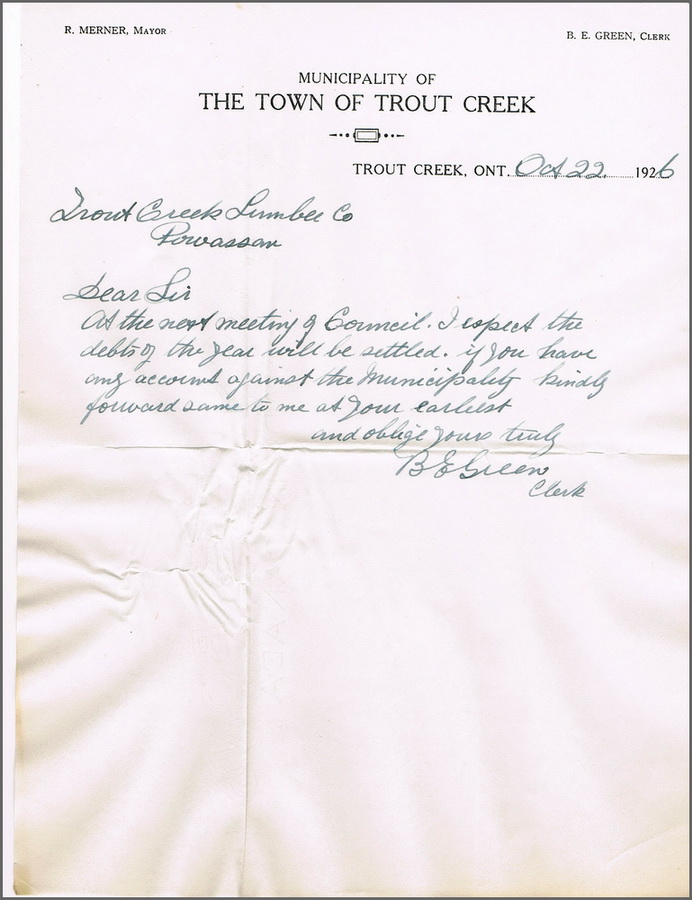 R. MERNER, MAYOR
B. E. GREEN, CLERK
MUNICIPALITY OF
THE TOWN OF TROUT CREEK
TROUT CREEK, ONT. Oct 22. 1926
Trout Creek Lumber Co
Powassan
Dear Sir
At the next meeting of Council. I expect the
debts of the year will be settled. if you have
any account against the Municipality kindly
forward same to me at your earliest
and oblige yours truly
B E Green
Clerk